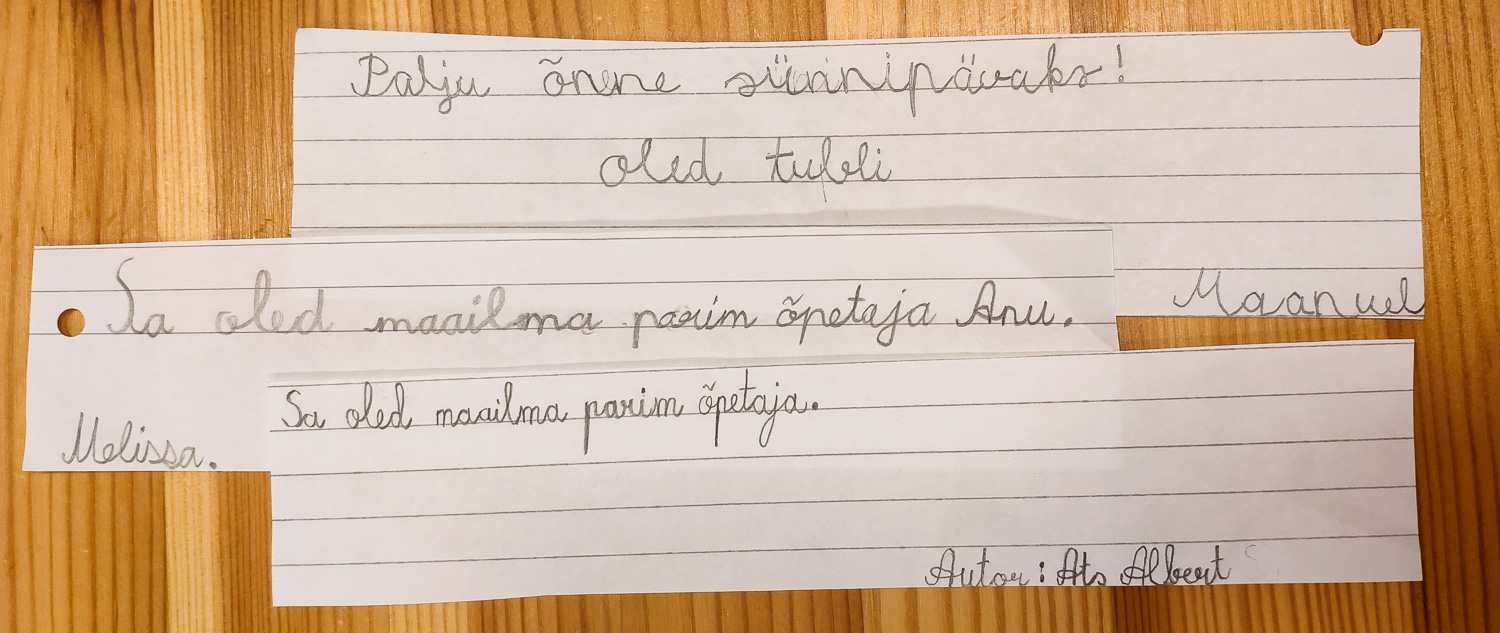 Palju õnne sünnipäevaks!
oled tubli
Maanuel
Sa oled maailma parim õpetaja Anu.
Melissa.
Sa oled maailma parim õpetaja.
Autor: Ats Albert S.